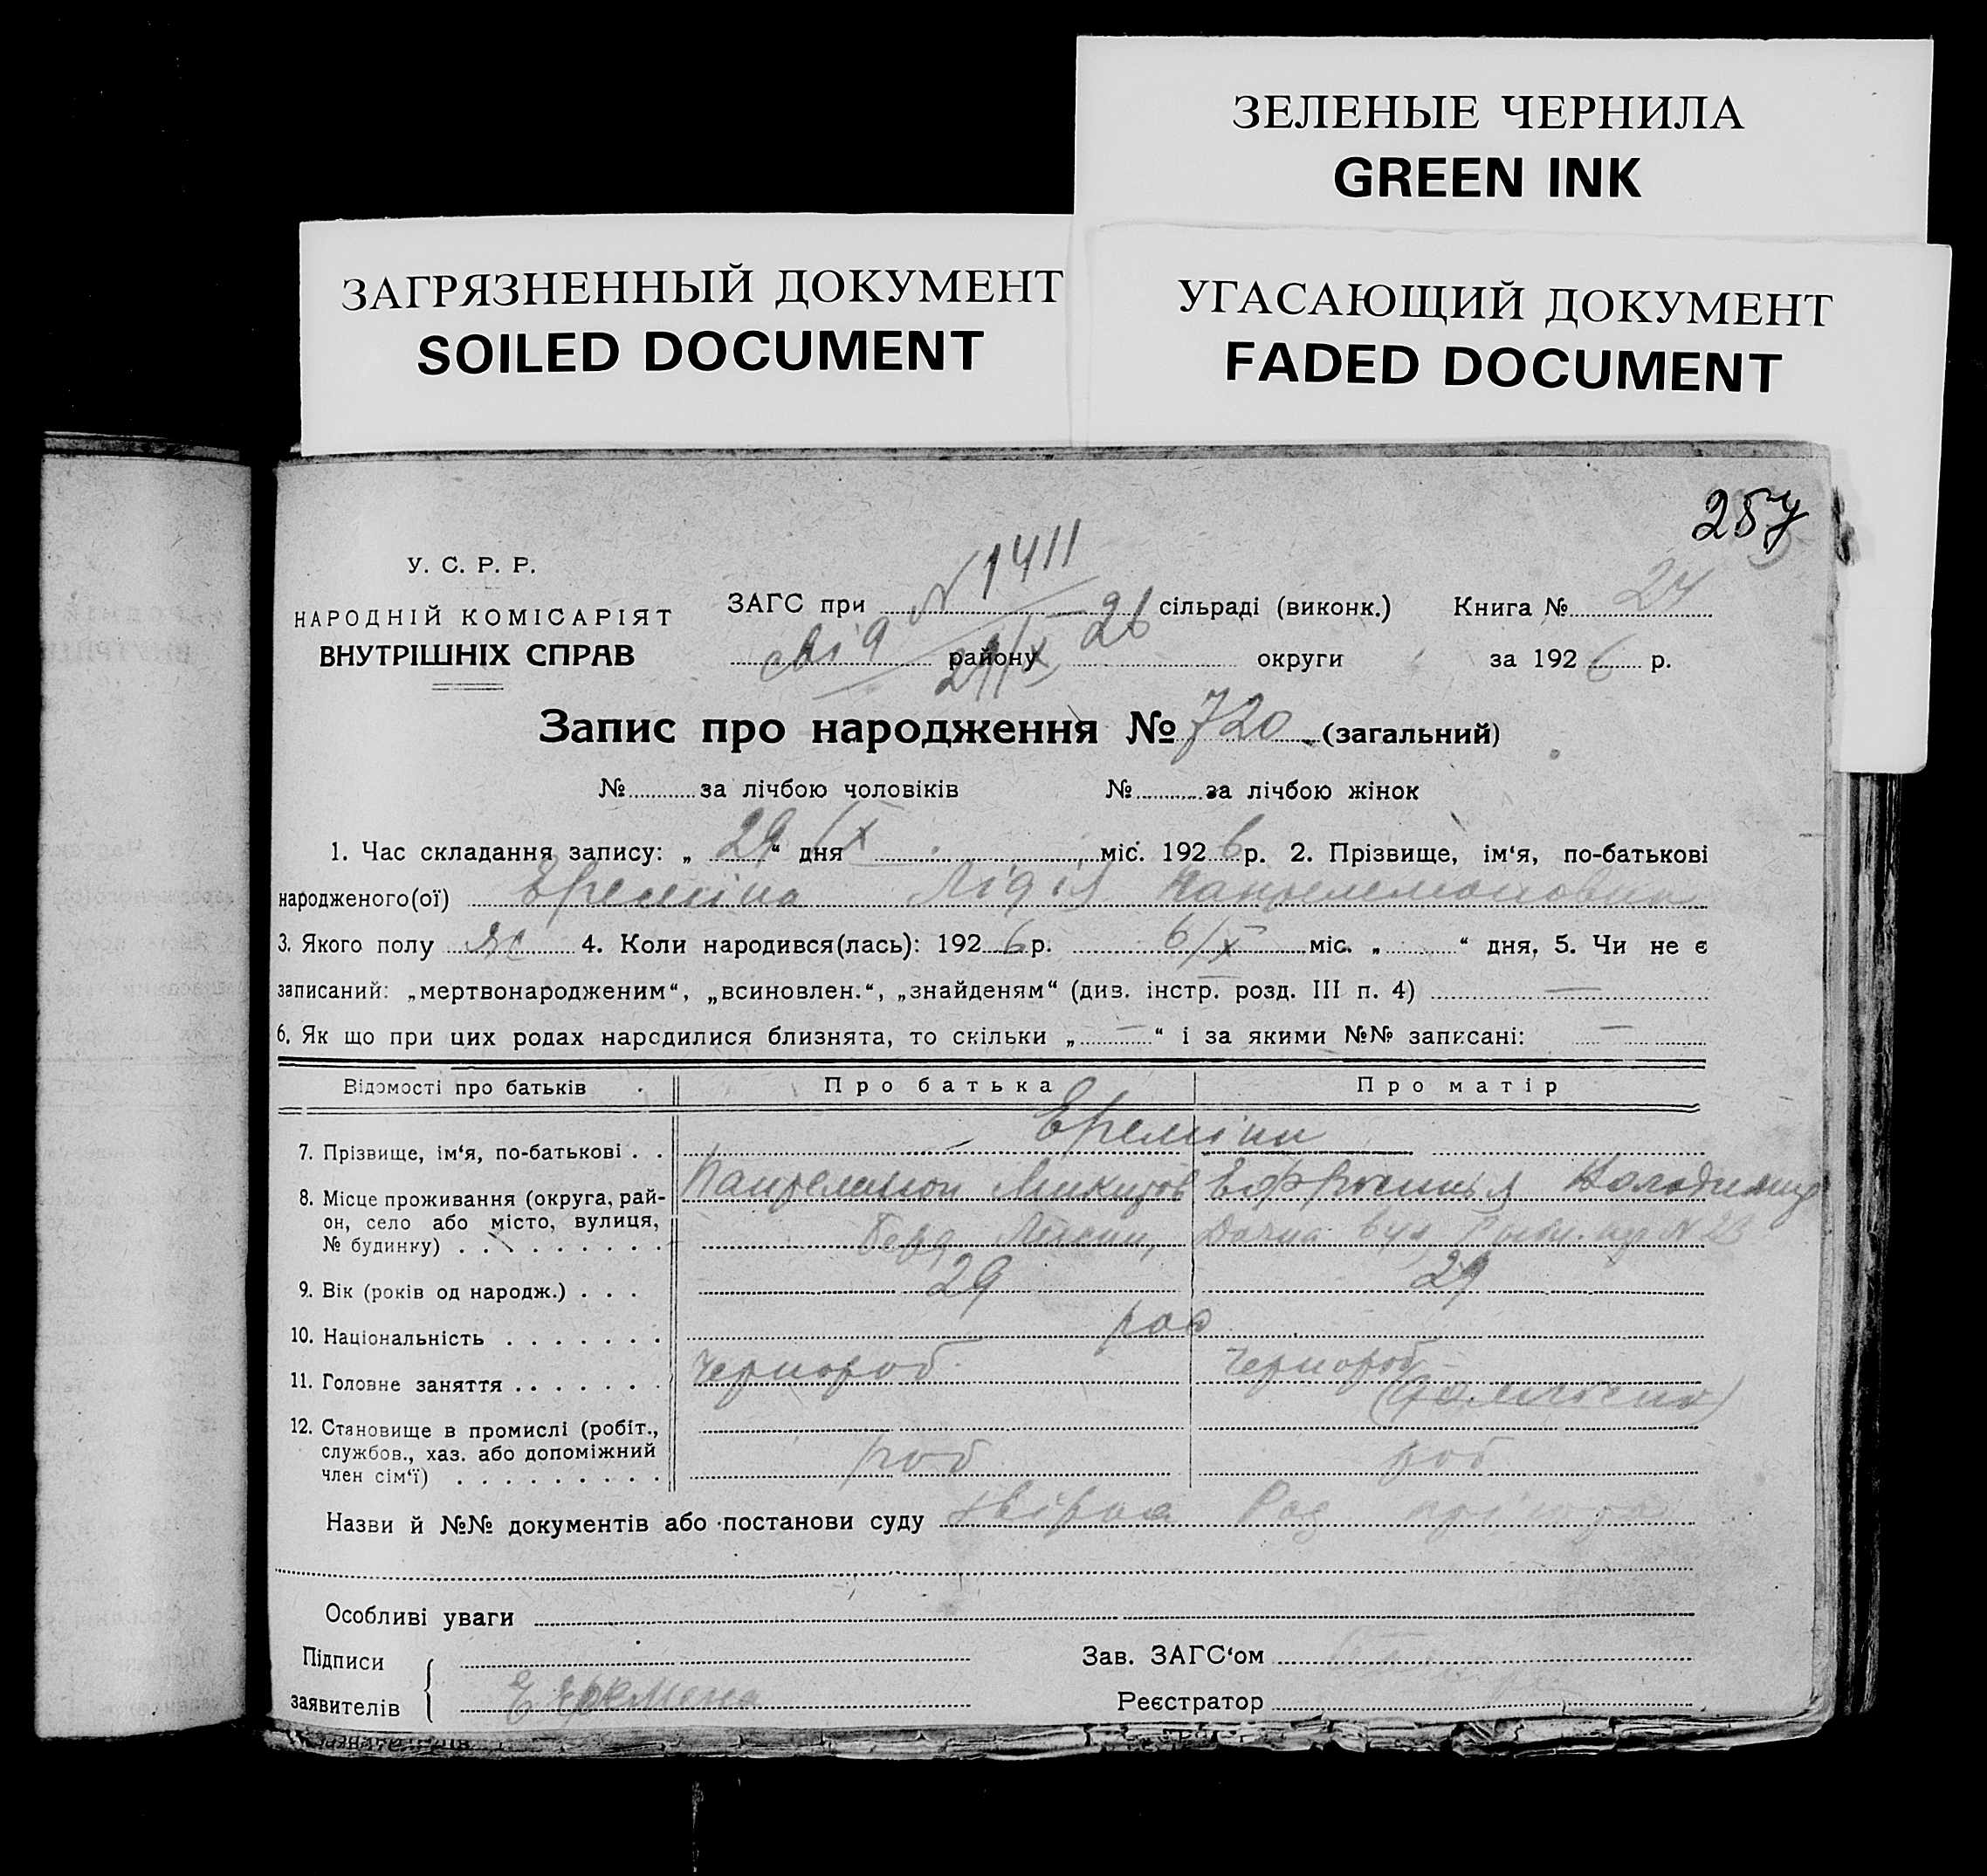 ЗЕЛЕНЫЕ ЧЕРНИЛА
GREEN INK
ЗАГРЯЗНЕННЫЙ ДОКУМЕНТ
SOILED DOCUMENT
УГАСАЮЩИЙ ДОКУМЕНТ
FADED DOCUMENT
257
У. С. Р. Р.
НАРОДНІЙ КОМІСАРІЯТ
ВНУТРІШНІХ СПРАВ
N 1411
ЗАГС при сільраді (виконк.) Книга № 24
свід 29/IX 26
району округи за 1926 р.
Запис про народження № 720 (загальний)
№ за лічбою чоловіків № за лічбою жінок
1. Час складання запису: „ 29 “ дня IX міс. 1926 р. 2. Прізвище, ім‘я, по-батькові
народженого(ої) Ереміна Лідія Пантелемоновна
3. Якого полу жс 4. Коли народився(лась): 1926 р. 6/IX міс. „ “ дня, 5. Чи не є
записаний: „мертвонародженим“, „всиновлен.“, „знайденям“ (див. інстр. розд. III п. 4) —
6. Як що при цих родах народилися близнята, то скільки „ — “ і за якими №№ записані: —
Відомості про батьків Про батька Про матір
7. Прізвище, ім‘я, по-батькові . . Ереміни
Пантелимон Микитов Ефросинія Володимир
8. Місце проживання (округа, рай-
он, село або місто, вулиця,
№ будинку) . . . . . . . . . Дачна вул. N 23
9. Вік (років од народж.) . . . 29 29
10. Національність . . . . . . . рос
11. Головне заняття . . . . . . . Чернороб Чернороб
(домгосп)
12. Становище в промислі (робіт.,
службов., хаз. або допоміжний
член сім‘ї) . . . . . . . . . роб роб
Назви й №№ документів або постанови суду
Особливі уваги
Підписи
заявителів
Зав. ЗАГС‘ом
Реєстратор